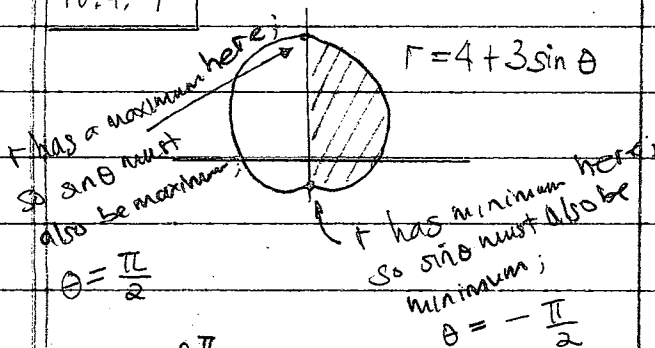 r = 4 + 3 sin θ
r has a maximum here;
so sin θ must
also be maximum;
θ = π/2
r has minimum here;
so sin θ must also be
minimum;
θ = - π/2